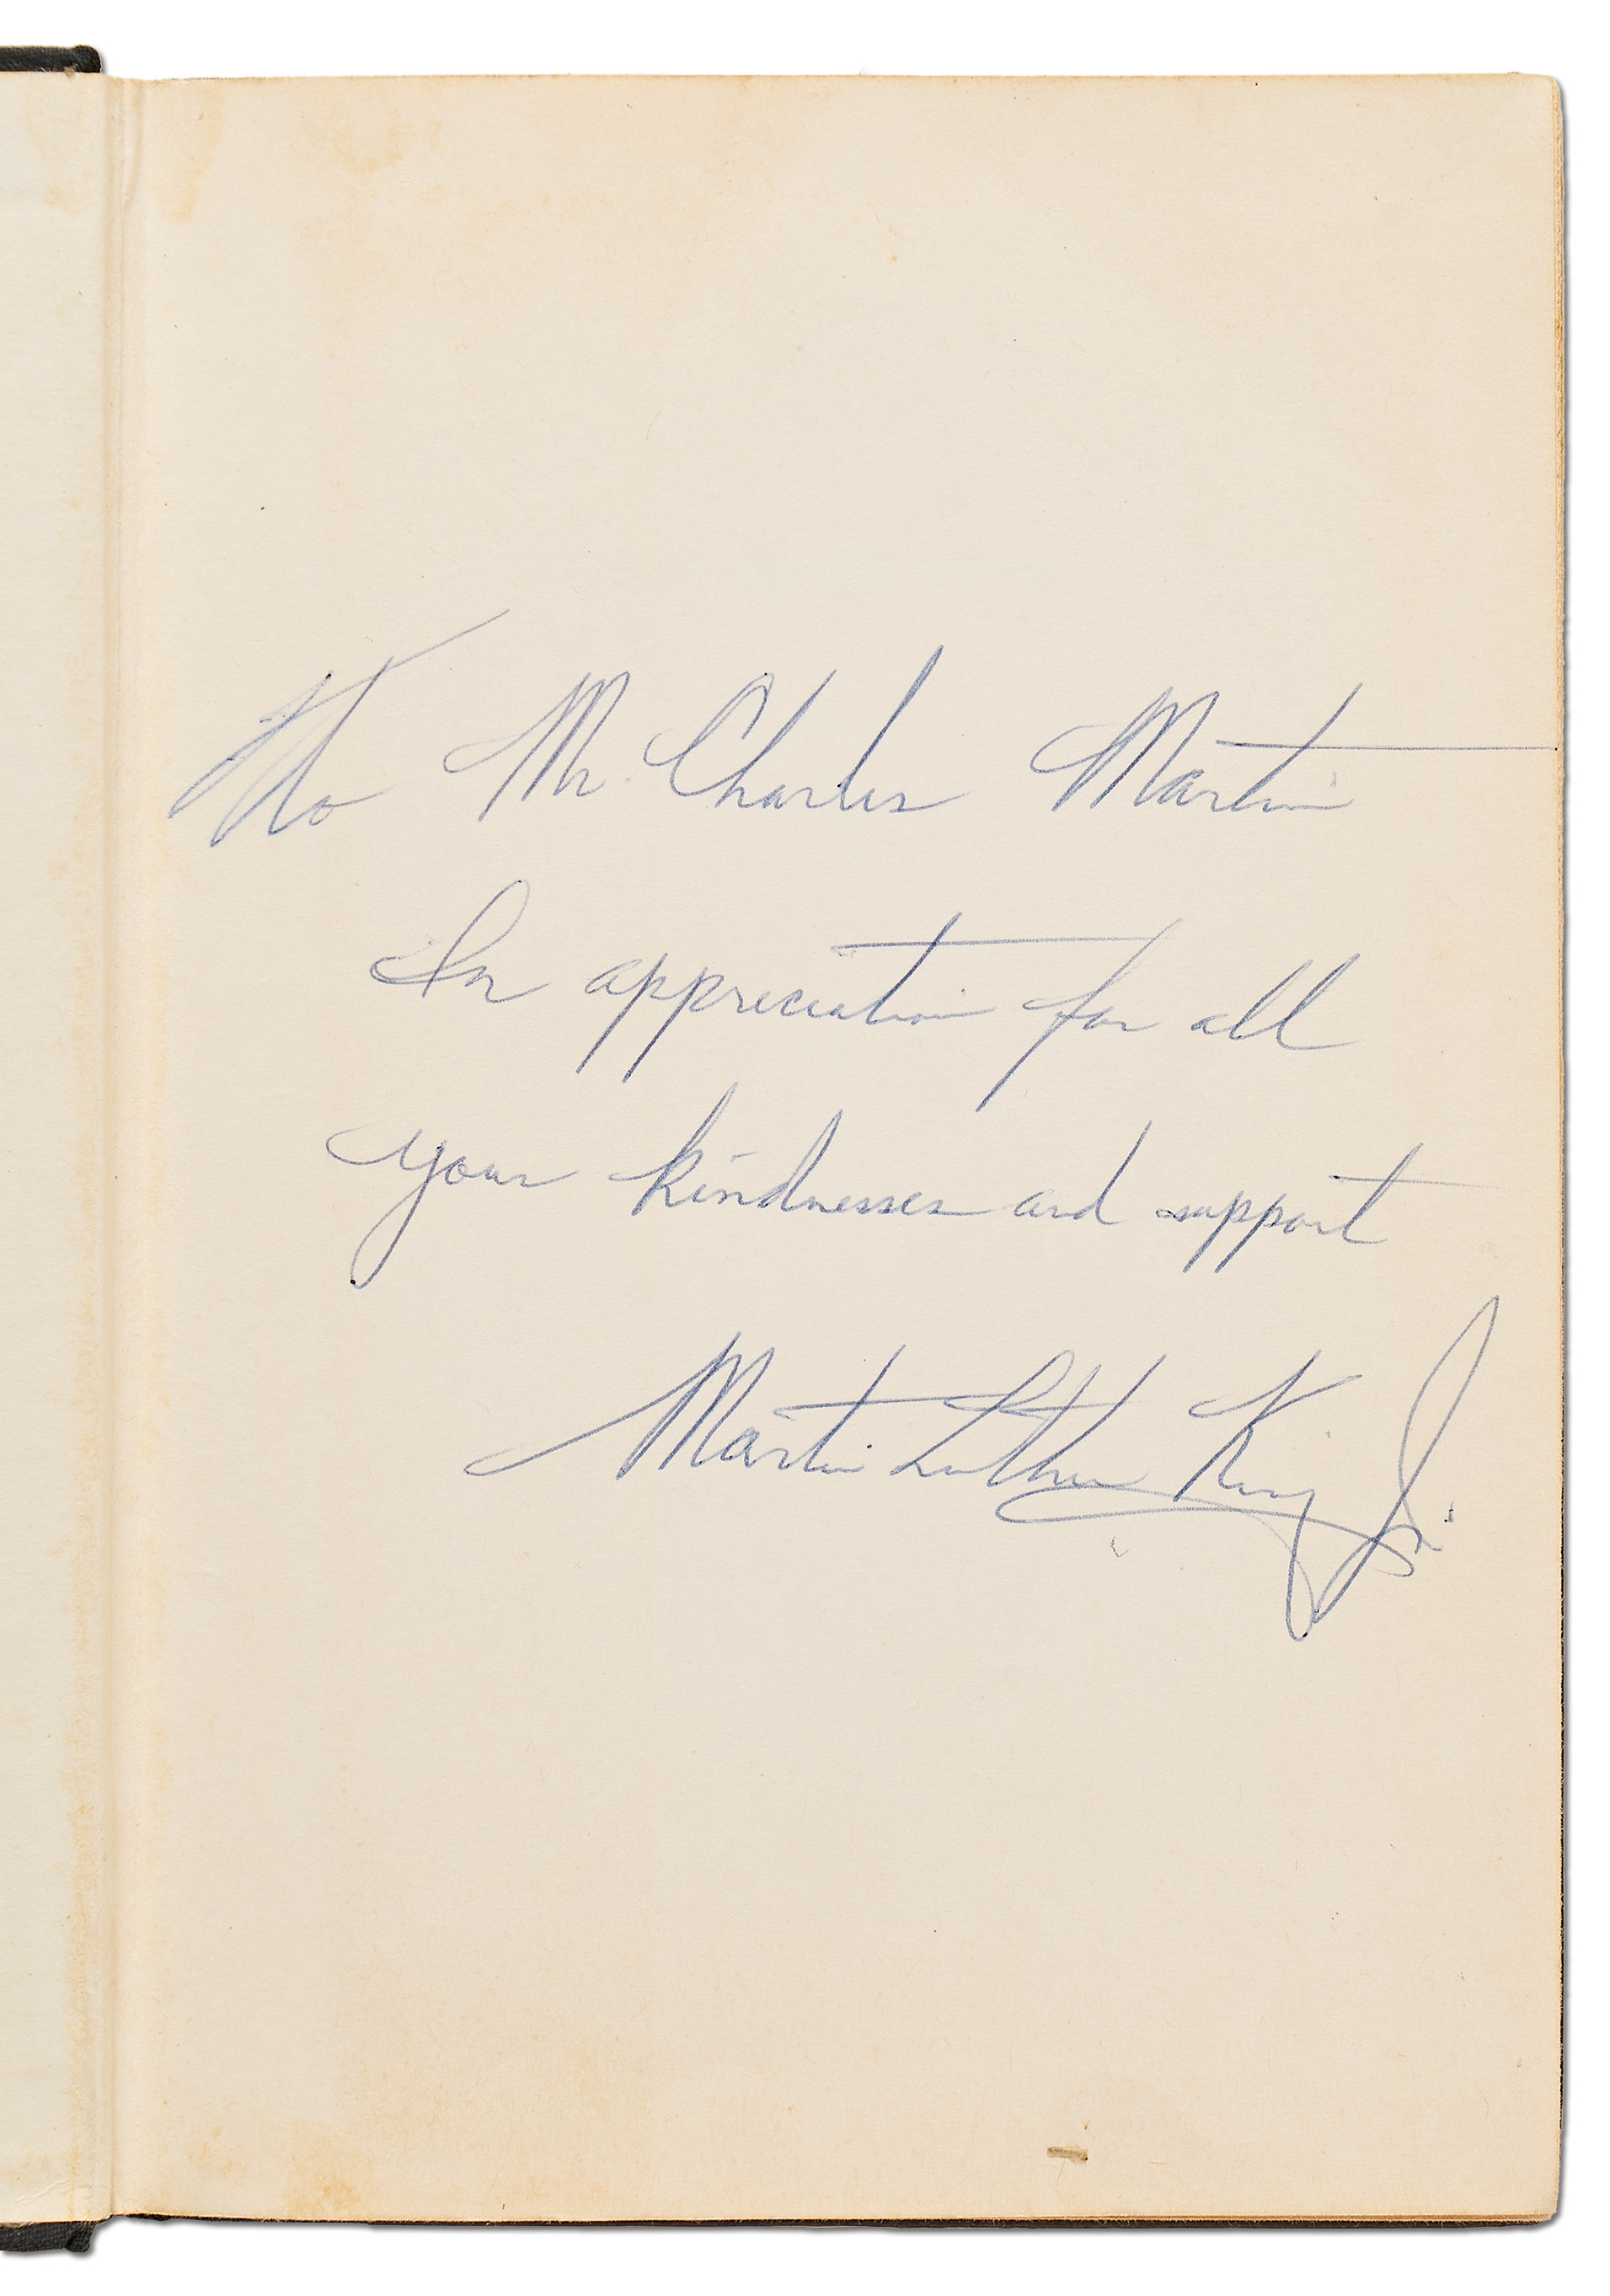 To Mr. Charles Martin
In appreciation for all
your kindnesses and support
Martin Luther King Jr.